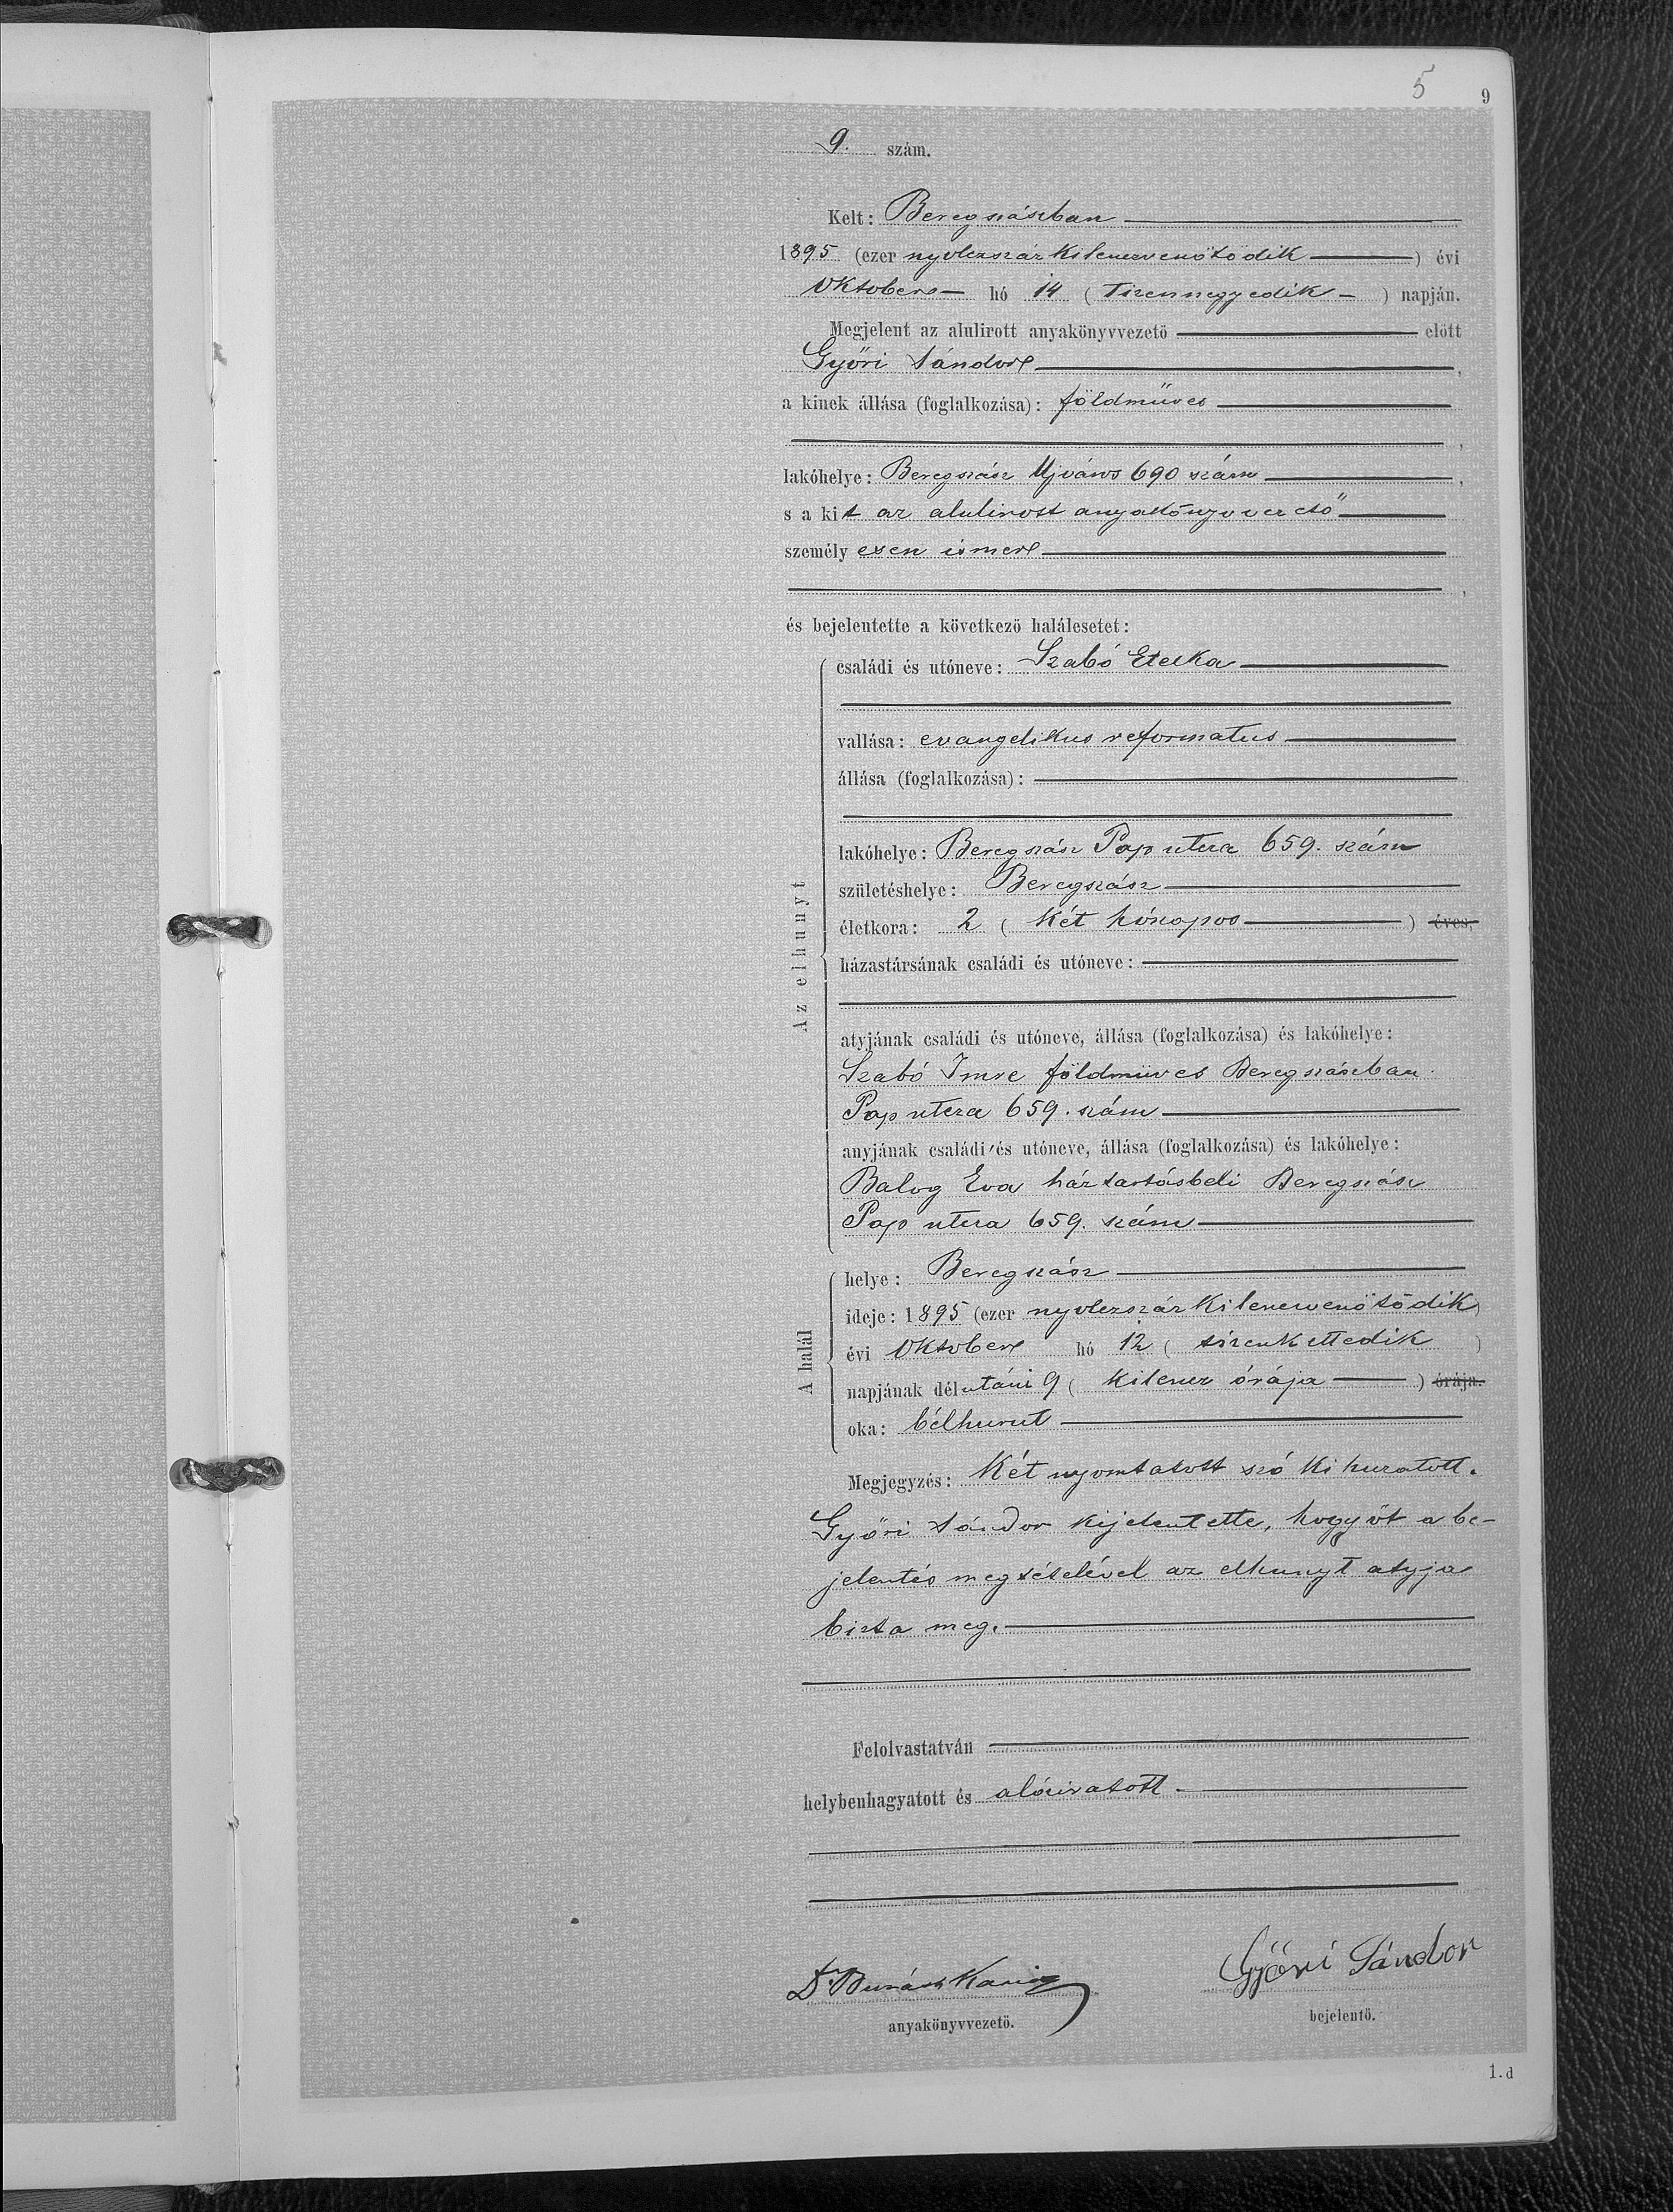 5
9
9. szám.
Kelt: Beregszászban
1895 (ezer nyolczszáz kilenczvenötödik ) évi
Oktober hó 14 ( Tizennegyedik ) napján.
Megjelent az alulirott anyakönyvvezető előtt
Győri Sándor ,
a kinek állása (foglalkozása): földműves
,
lakóhelye: Beregszász Ujváros 690 szám ,
s a kit az alulirott anyakönyvvezető
személyesen ismer
,
és bejelentette a következő halálesetet:
Az elhunyt
családi és utóneve: Szabó Etelka
vallása: evangelikus reformatus
állása (foglalkozása):
lakóhelye: Beregszász Pap utcza 659. szám
születéshelye: Beregszász
életkora: 2 ( Két hónapos ) éves,
házastársának családi és utóneve:
atyjának családi és utóneve, állása (foglalkozása) és lakóhelye:
Szabó Imre földmüves Beregszászban
Pap utcza 659. szám
anyjának családi és utóneve, állása (foglalkozása) és lakóhelye:
Balog Eva háztartásbeli Beregszász
Pap utcza 659. szám
A halál
helye: Beregszász
ideje: 1895 (ezer nyolczszáz kilenczvenötödik)
évi Oktober hó 12 ( tizenkettedik )
napjának délutáni 9 ( kilencz órája ) órája.
oka: bélhurut
Megjegyzés: Két nyomtatott szó kihuzatott.
Győri Sándor kijelentette, hogy őt a be-
jelentés megtételével az elhunyt atyja
bizta meg.
Felolvastatván
helybenhagyatott és aláiratott.
Győri Sándor
anyakönyvvezető.
bejelentő.
1.d